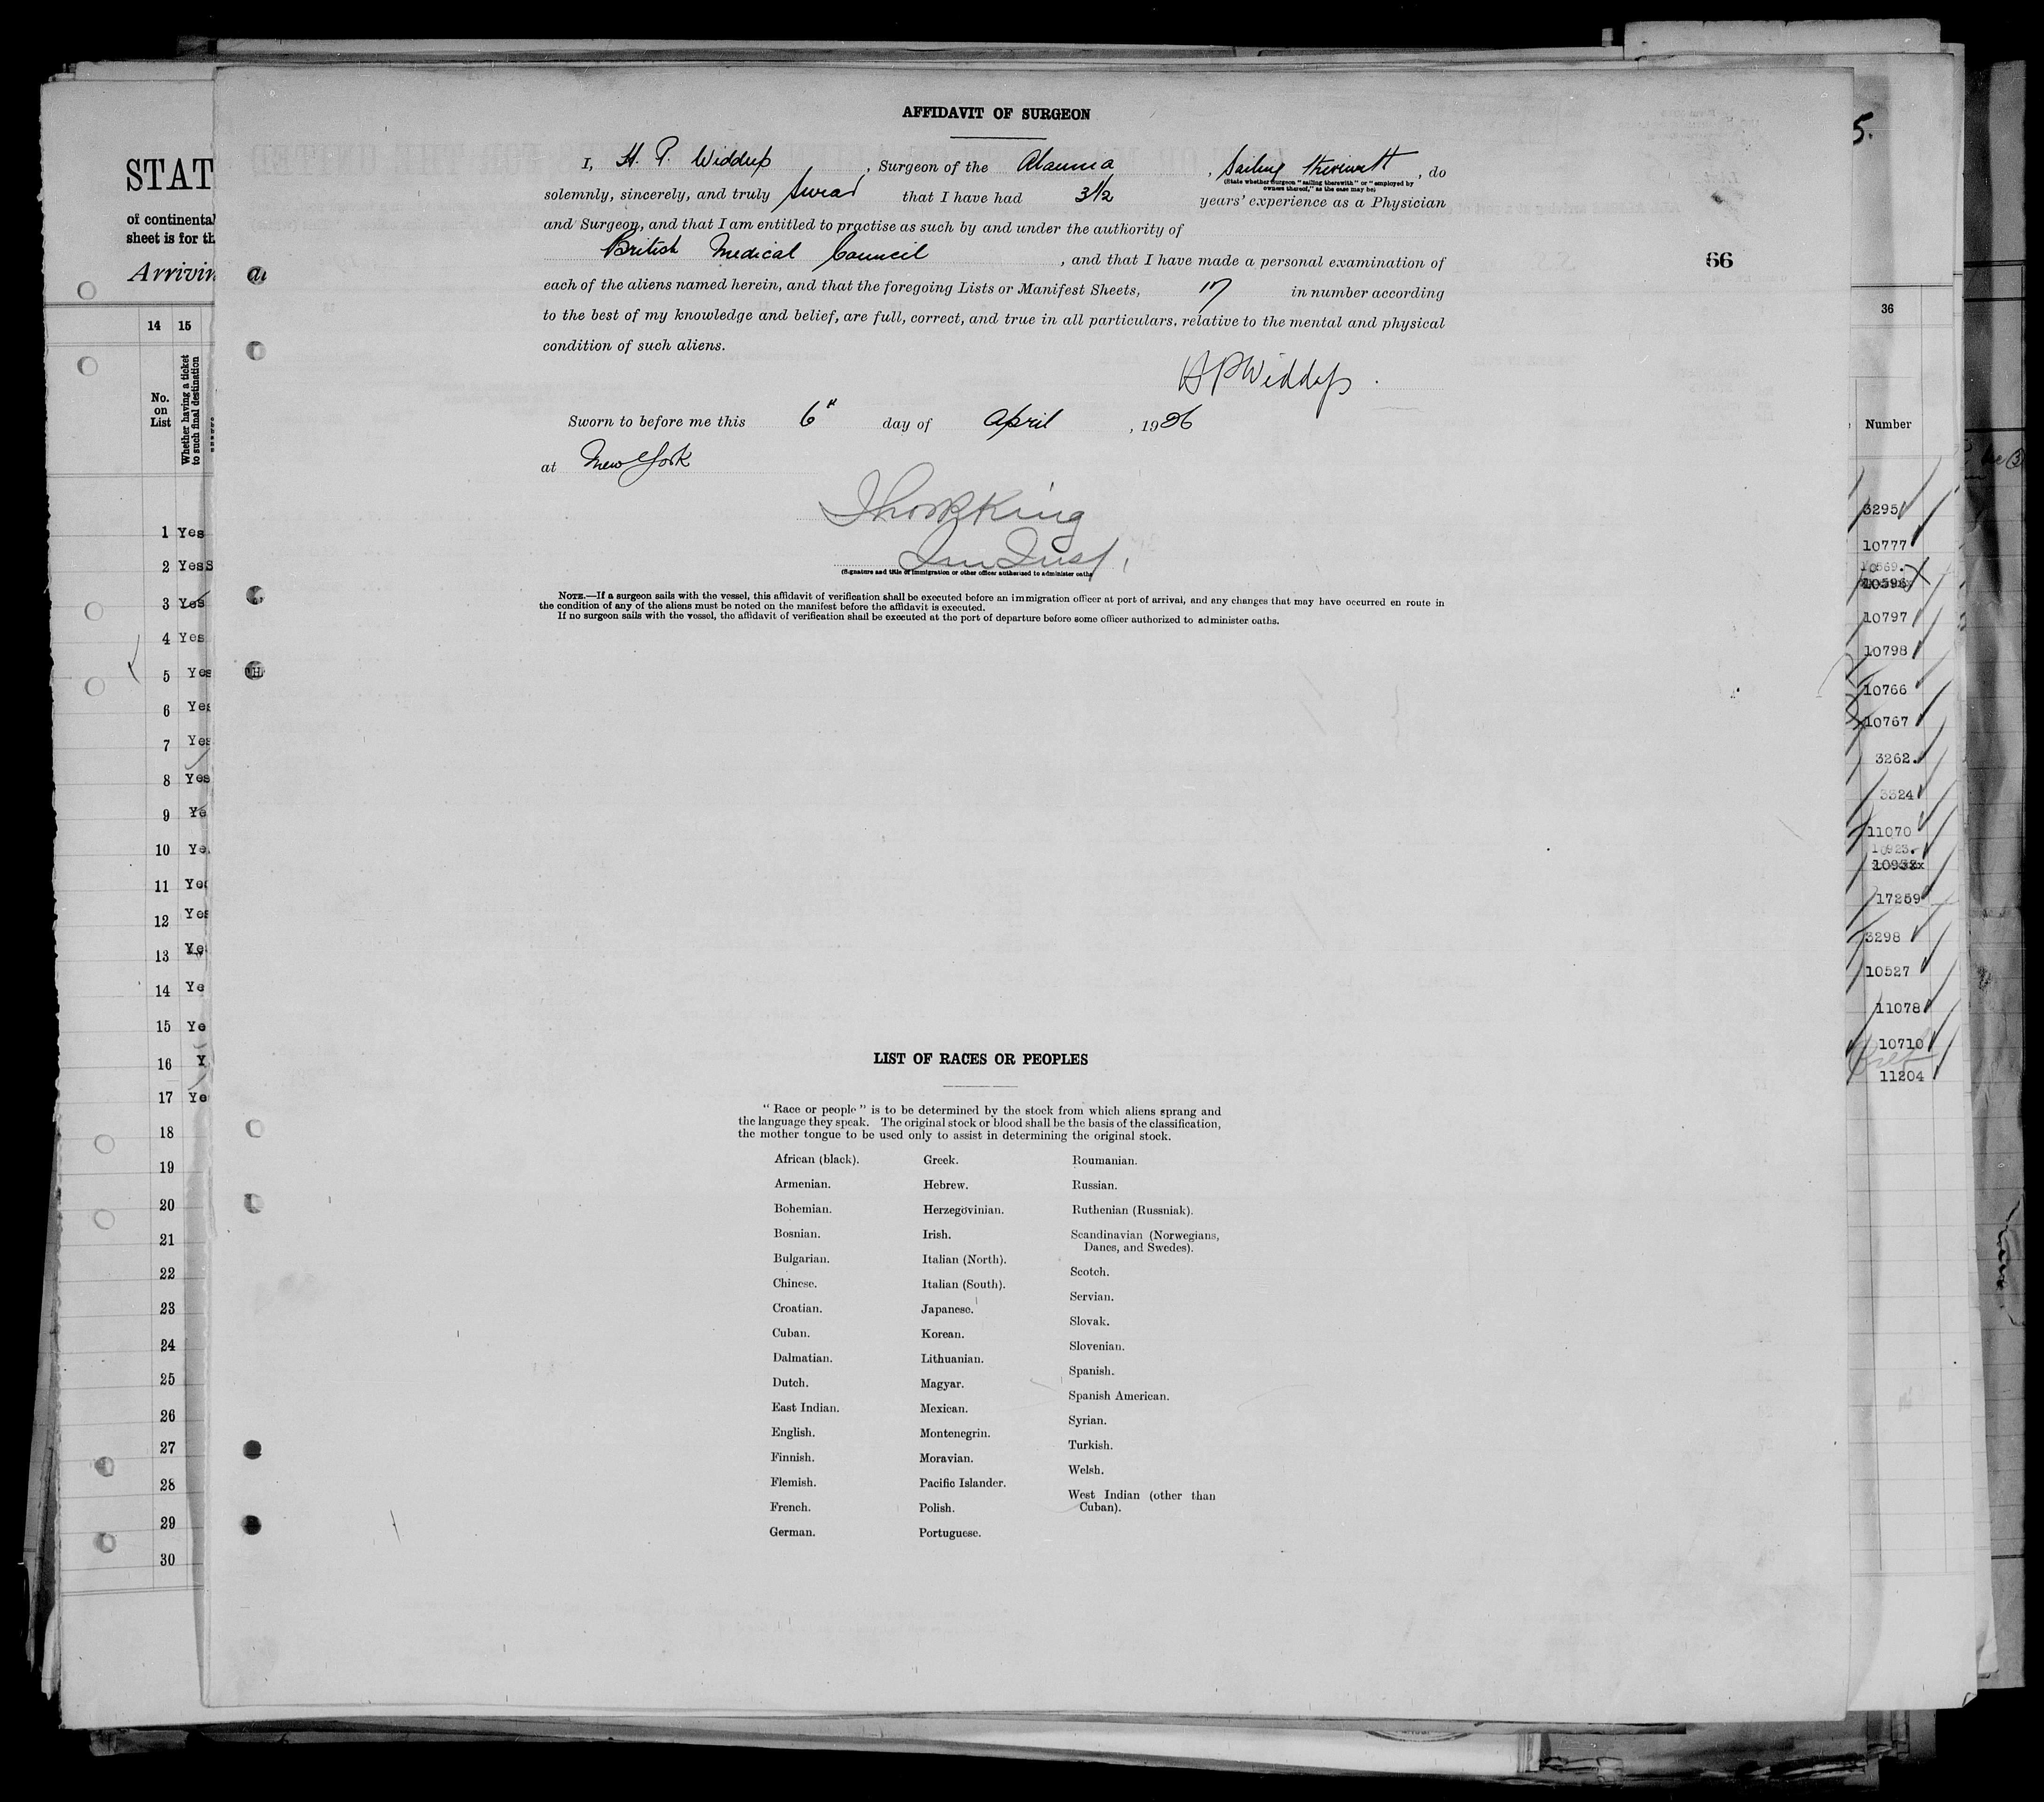 AFFIDAVIT OF SURGEON
I, H. P. Widdup, Surgeon of the Alaunia, Sailing therewith, do
(State whether Surgeon "sailing therewith" or "employed by
owners thereof," as the case may be)
solemnly, sincerely, and truly swear that I have had 3½ years' experience as a Physician
and Surgeon, and that I am entitled to practise as such by and under the authority of
British Medical Council, and that I have made a personal examination of
each of the aliens named herein, and that the foregoing Lists or Manifest Sheets, 17 in number according
to the best of my knowledge and belief, are full, correct, and true in all particulars, relative to the mental and physical
condition of such aliens.
H P Widdup.
Sworn to before me this 6th day of April, 1926
at New York
King
Imm Insp.
(Signature and title of immigration or other officer authorized to administer oaths
NOTE.—If a surgeon sails with the vessel, this affidavit of verification shall be executed before an immigration officer at port of arrival, and any changes that may have occurred en route in
the condition of any of the aliens must be noted on the manifest before the affidavit is executed.
If no surgeon sails with the vessel, the affidavit of verification shall be executed at the port of departure before some officer authorized to administer oaths.
66
LIST OF RACES OR PEOPLES
"Race or people" is to be determined by the stock from which aliens sprang and
the language they speak. The original stock or blood shall be the basis of the classification,
the mother tongue to be used only to assist in determining the original stock.
African (black).
Armenian.
Bohemian.
Bosnian.
Bulgarian.
Chinese.
Croatian.
Cuban.
Dalmatian.
Dutch.
East Indian.
English.
Finnish.
Flemish.
French.
German.
Greek.
Hebrew.
Herzegovinian.
Irish.
Italian (North).
Italian (South).
Japanese.
Korean.
Lithuanian.
Magyar.
Mexican.
Montenegrin.
Moravian.
Pacific Islander.
Polish.
Portuguese.
Roumanian.
Russian.
Ruthenian (Russniak).
Scandinavian (Norwegians,
Danes, and Swedes).
Scotch.
Servian.
Slovak.
Slovenian.
Spanish.
Spanish American.
Syrian.
Turkish.
Welsh.
West Indian (other than
Cuban).
STAT
of continental
sheet is for th
Arrivin
14 15
No.
on
List
Whether having a ticket
to such final destination
1 Yes
2 Yes
3 Yes
4 Yes
5 Yes
6 Yes
7 Yes
8 Yes
9 Ye
10 Ye
11 Yes
12 Yes
13 Ye
14 Ye
15 Ye
16 Y
17 Ye
18
19
20
21
22
23
24
25
26
27
28
29
30
5.
36
Number
3295
10777
10569.
10596
10797
10798
10766
10767
3262.
3324
11070
10923.
17259
3298
10527
11078
10710
11204